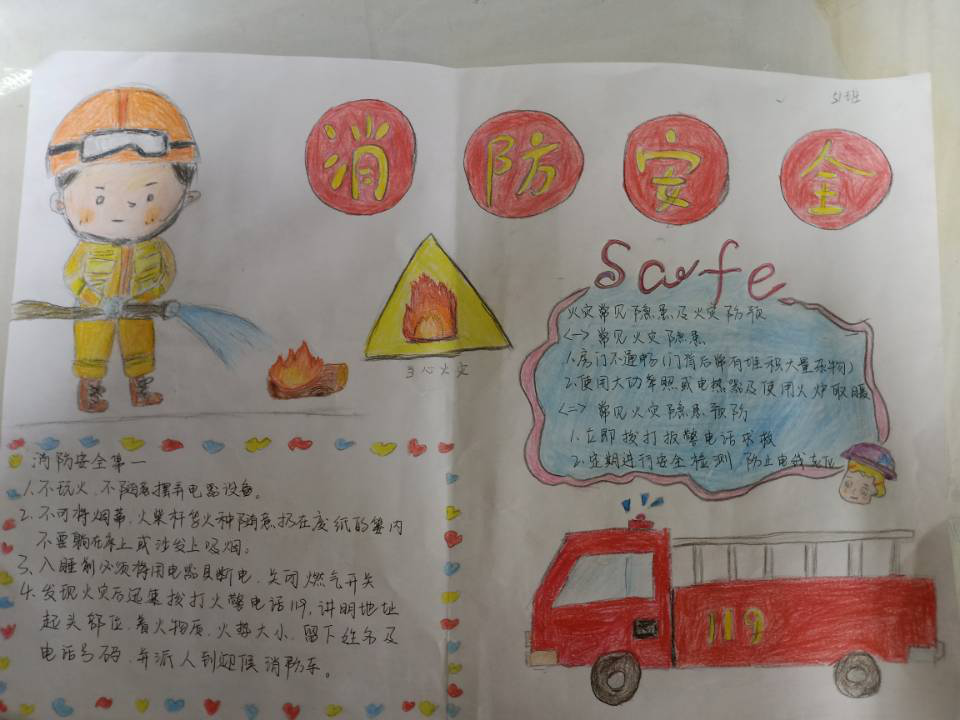 51班
消防安全
Safe
当心火灾
火灾常见隐患及火灾防范
<一> 常见火灾隐患
1.房门不通畅(门背后常有堆积大量杂物)
2.使用大功率照或电热器及使用火炉取暖
<二> 常见火灾隐患预防
1.立即拨打报警电话求救
2.定期进行安全检测 防止电线
消防安全第一
1.不玩火、不随意摆弄电器设备。
2.不可将烟蒂,火柴杆等火种随意扔在废纸的篓内
不要躺在床上或沙发上吸烟。
3.入睡前必须将用电器具断电、关闭燃气开关
4.发现火灾后迅速拨打火警电话119,讲明地址
起火部位、着火物质、火势大小、留下姓名及
电话号码、并派人到迎候消防车。
119